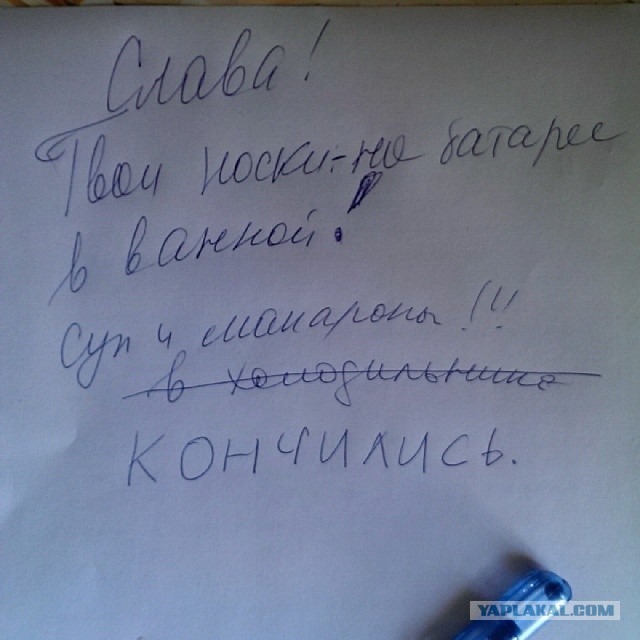 Слава!
Твои носки-на батарее
в ванной!
Суп и макароны!!!
в холодильнике
КОНЧИЛИСЬ.
YAPLAKAL.COM